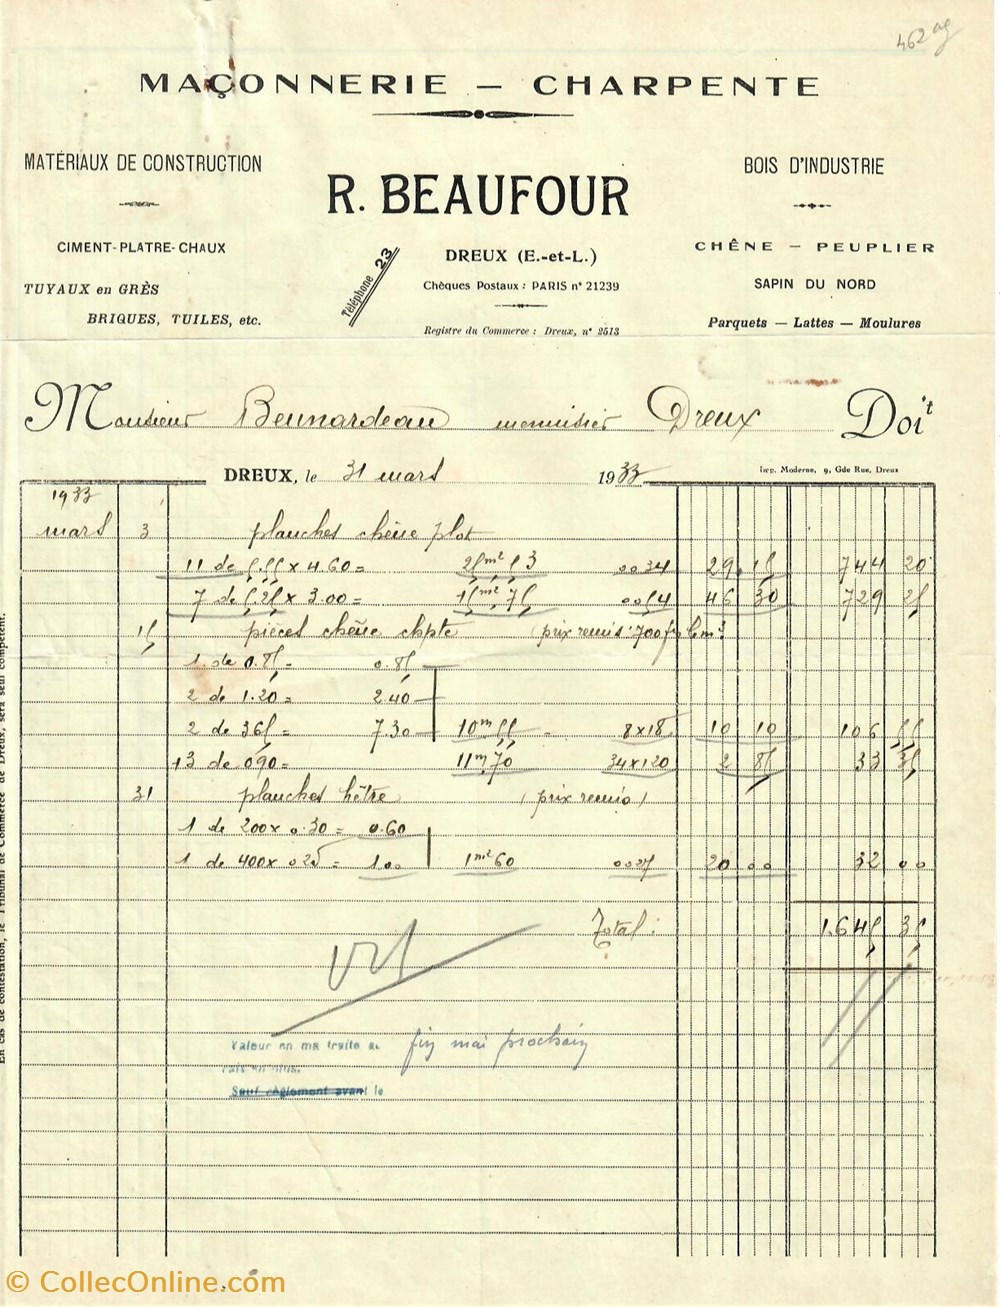 462 ag
MAÇONNERIE — CHARPENTE
MATÉRIAUX DE CONSTRUCTION
BOIS D'INDUSTRIE
R. BEAUFOUR
CIMENT-PLATRE-CHAUX
CHÊNE — PEUPLIER
Téléphone 23
DREUX (E.-et-L.)
TUYAUX en GRÈS
Chèques Postaux : PARIS nº 21239
SAPIN DU NORD
BRIQUES, TUILES, etc.
Registre du Commerce : Dreux, nº 2513
Parquets — Lattes — Moulures
Monsieur Bennardeau menuisier Dreux Doit
Imp. Moderne, 9, Gde Rue, Dreux
DREUX, le 31 mars 1933
1933
mars 3 planches chêne plot
11 de 5.55 x 4.60 = 25m² 53 0034 29.15 744 20
7 de 5.25 x 3.00 = 15m² 75 0054 46 30 729 25
15 pièces chêne chpte (prix remis: 700f le m³
1 de 0.85 = 0.85
2 de 1.20 = 2.40
2 de 365 = 7.30 10m 55 - 8x18 10 10 106 55
13 de 090 = 11m 70 34x120 2 85 33 35
31 planches hêtre (prix remis)
1 de 200 x 0.30 = 0.60
1 de 400 x 025 = 1.00 1m² 60 0027 20 00 32 00
Total : 1.645 35
Valeur en ma traite au fin mai prochain
Sauf règlement avant le
En cas de contestation, le Tribunal de Commerce de Dreux, sera seul compétent.
© CollecOnline.com